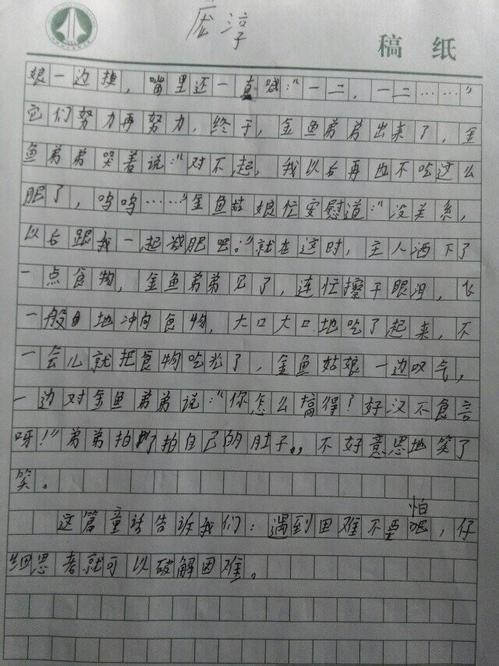 庞淳
稿纸
娘一边拽，嘴里还一直喊："一二，一二……"
它们努力再努力，终于，金鱼弟弟出来了，金
鱼弟弟哭着说："对不起，我以后再也不吃这么
肥了，呜呜……"金鱼姑娘忙安慰道："没关系，
以后跟我一起减肥吧。"就在这时，主人洒下了
一点食物，金鱼弟弟见了，连忙擦干眼泪，飞
一般自地冲向食物，大口大口地吃了起来，不
一会儿就把食物吃光了，金鱼姑娘一边叹气，
一边对金鱼弟弟说："你怎么搞得！好汉不食言
呀！"弟弟拍了拍自己的肚子，不好意思地笑了
笑。
这篇童话告诉我们：遇到困难不要怕，仔
细思考就可以破解困难。